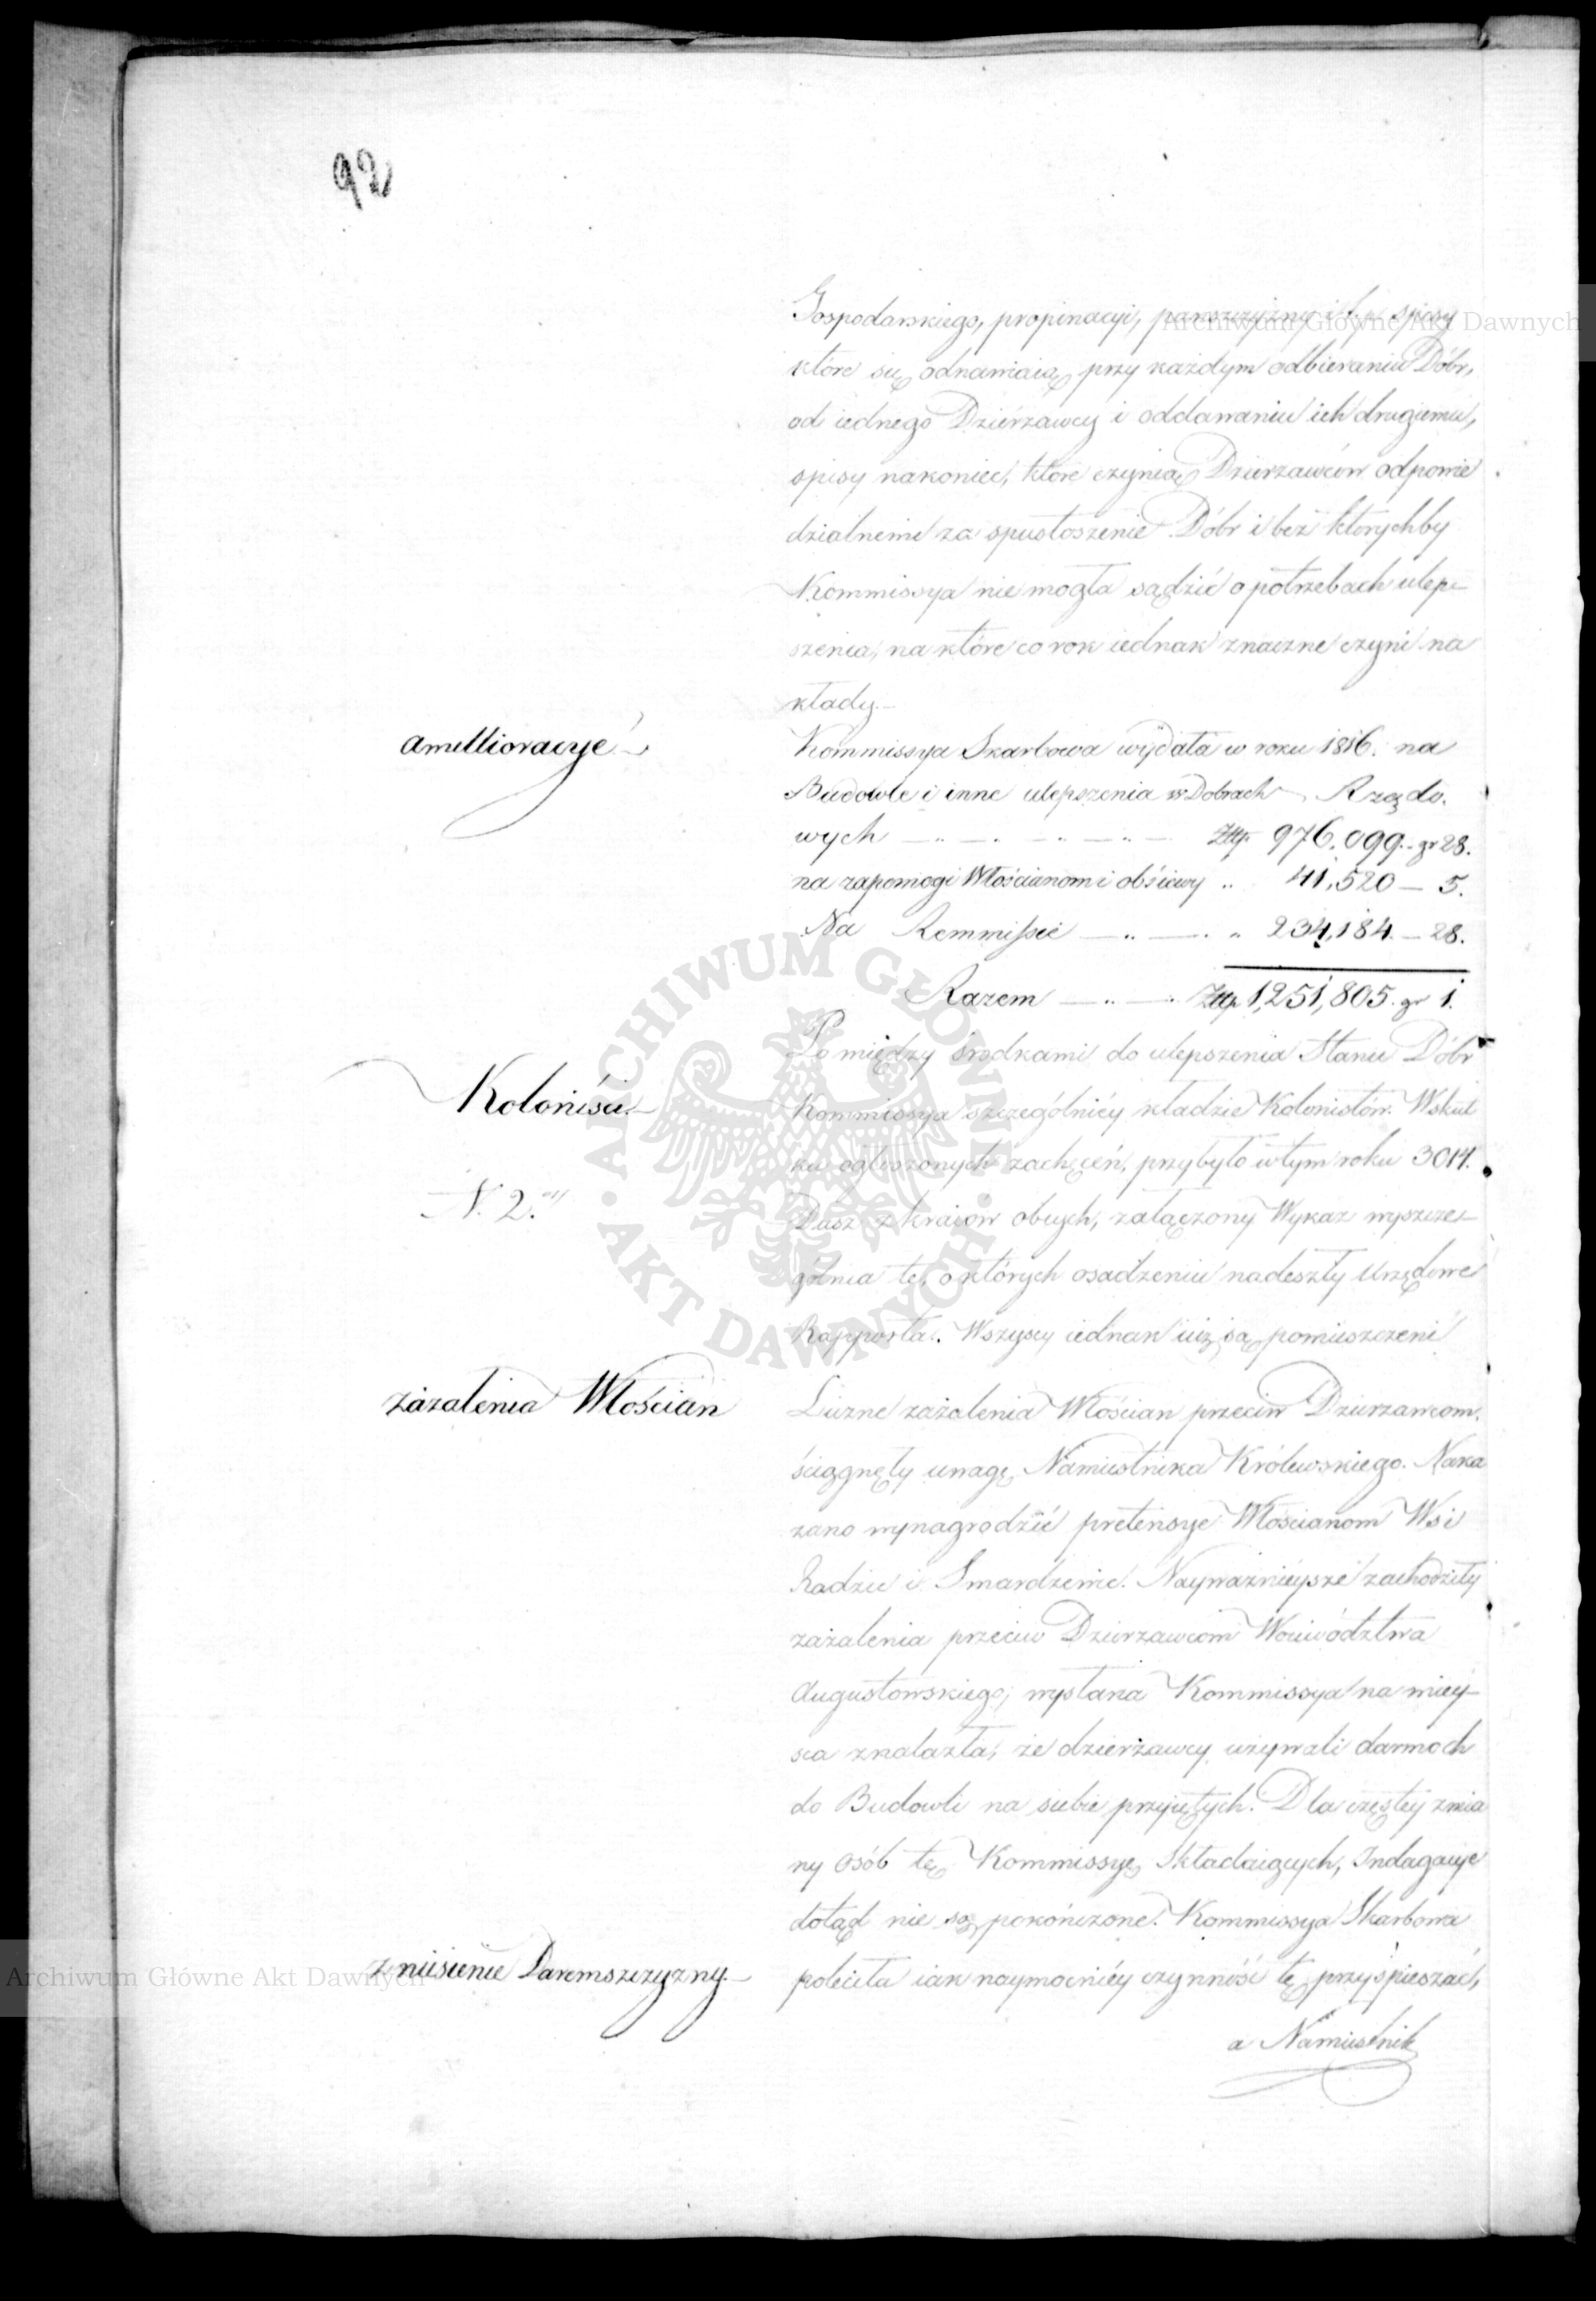 92
Gospodarskiego, propinacyi, panszczyzny i t. p. spisy
które się odnawiaią przy każdym odbieraniu Dóbr,
od iednego Dzierżawcy i oddawaniu ich drugiemu,
spisy nakoniec, które czynią Dzierżawców odpowie
dzialnemi za spustoszenie Dóbr i bez którychby
Kommissya nie mogła sądzić o potrzebach ulep-
szenia, na które co rok iednak znaczne czyni na
kłady.
amellioracyje
Kommissya Skarbowa wydała w roku 1816. na
Budowle i inne ulepszenia w Dobrach Rządo.
wych Złp 976.099.- gr 28.
na zapomogi Włościanom i obsiewy " 41,520 - 5.
Na Remmissie " 234,184 - 28.
Razem Złp 1,251,805. gr 1.
Koloniści.
Pomiędzy środkami do ulepszenia Stanu Dóbr
Kommissya szczególniéy kładzie Kolonistów. Wskut
ku ogłoszonych zachęceń, przybyło w tym roku 3014.
N. 2.
Dusz z kraiów obcych, załączony Wykaz wyszcze-
gólnia te, o których osadzeniu nadeszły Urzędowe
Rapporta. Wszyscy iednak iuż są pomieszczeni
zażalenia Włościan
Liczne zażalenia Włościan przeciw Dzierżawcom.
ściągnęły uwagę Namiestnika Królewskiego. Naka
zano wynagrodzić pretensye Włościanom Wsi
Radzie i Smardzewie. Nayważnieysze zachodziły
zażalenia przeciw Dzierżawcom Woiewództwa
Augustowskiego; wysłana Kommissya na miey-
sca znalazła, że dzierżawcy używali darmoch
do Budowli na siebie przyiętych. Dla częstey zmia
ny osób tę Kommissyę składaiących, Indagacye
dotąd nie są pokończone. Kommissya Skarbowa
zniesienie Daremszczyzny.
poleciła iak naymocniéy czynność tę przyśpieszać,
a Namiestnik
Archiwum Główne Akt Dawnych
ARCHIWUM GŁÓWNE AKT DAWNYCH
Archiwum Główne Akt Dawnych